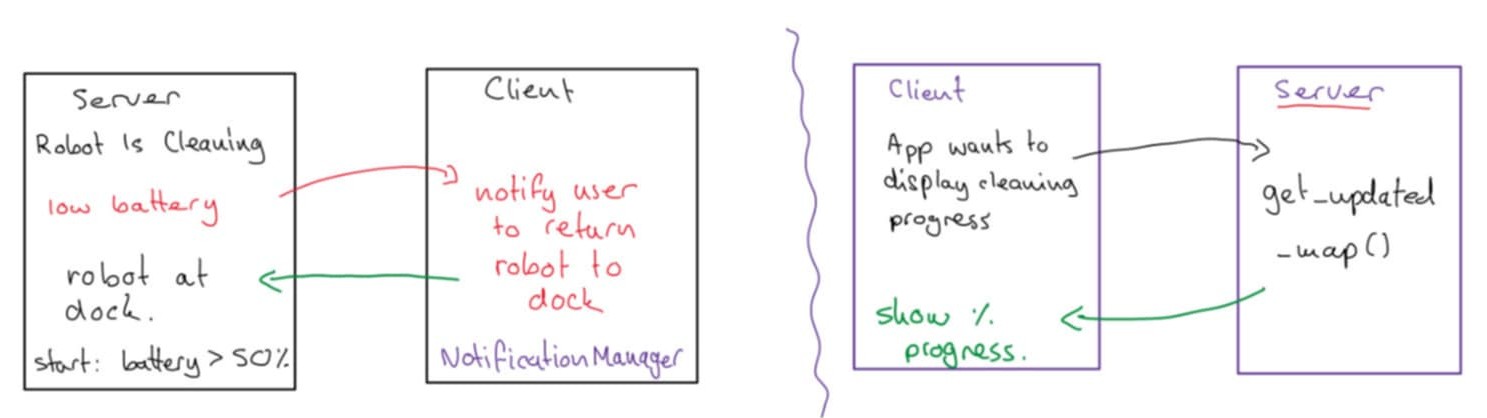 Server
Robot Is Cleaning
low battery
robot at
dock.
start: battery > 50%
Client
notify user
to return
robot to
dock
NotificationManager
Client
App wants to
display cleaning
progress
show %
progress.
Server
get_updated
_map()